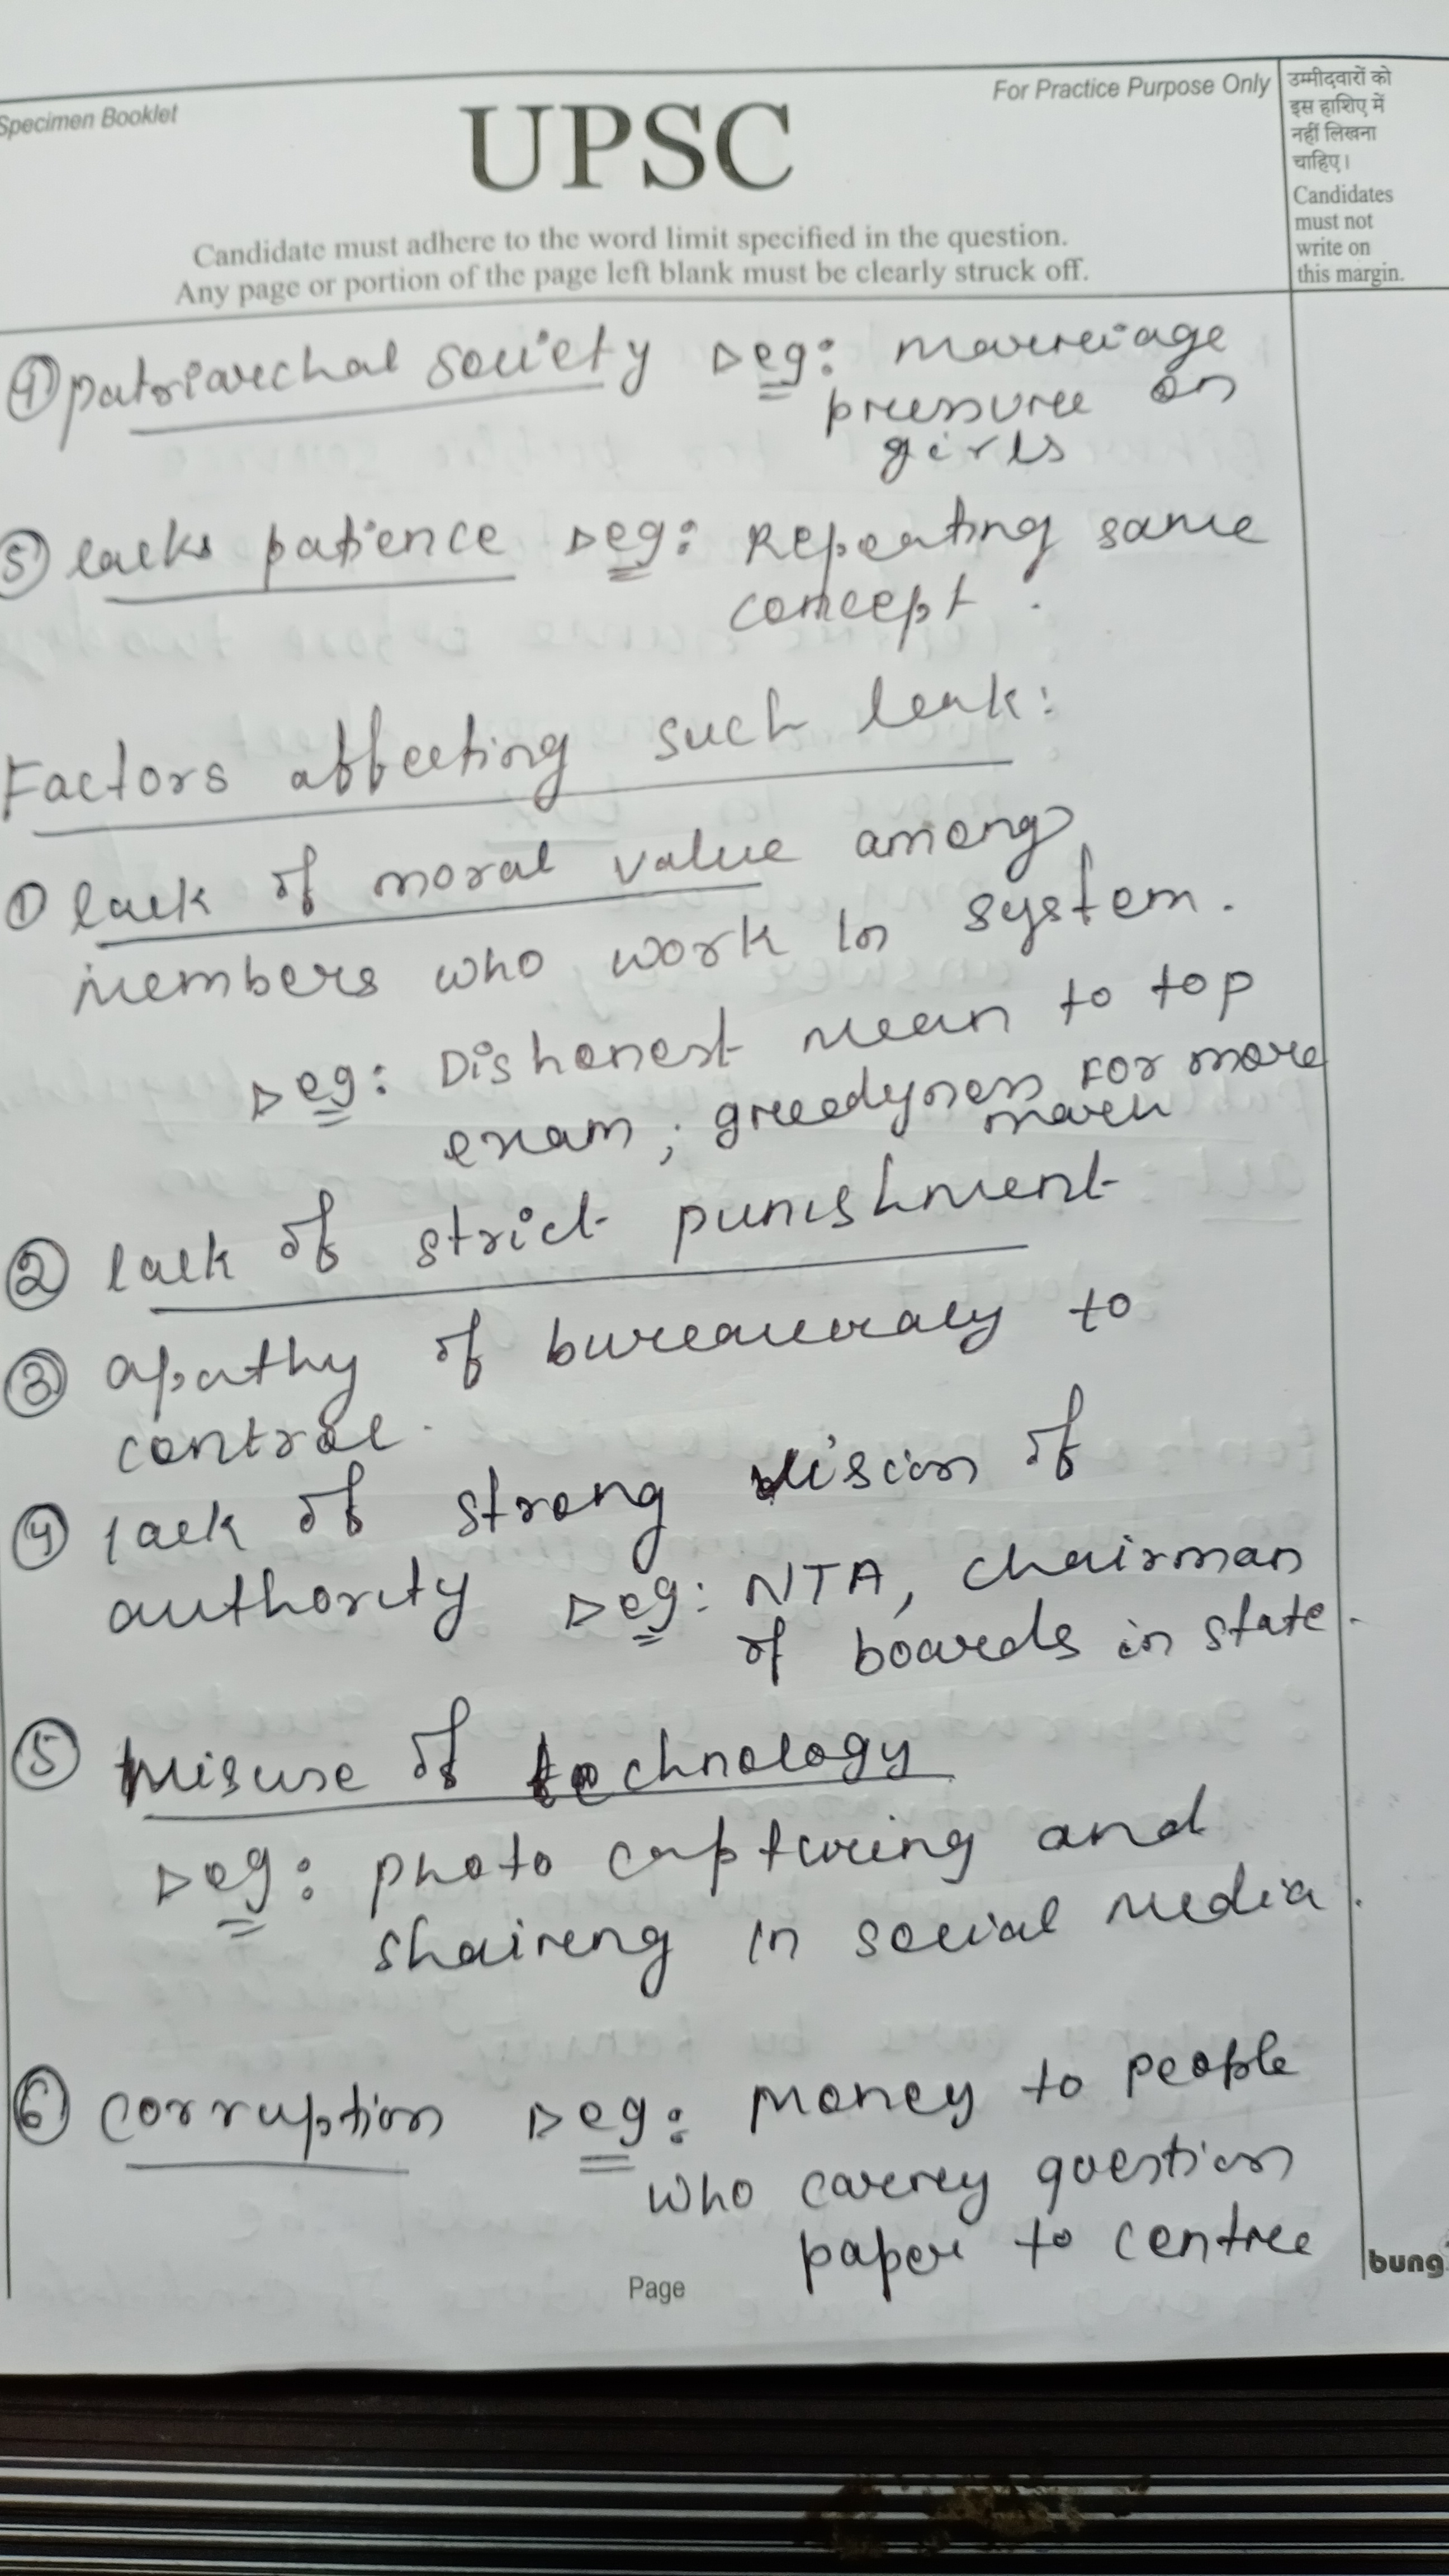 Specimen Booklet
UPSC
For Practice Purpose Only
Candidate must adhere to the word limit specified in the question.
Any page or portion of the page left blank must be clearly struck off.
उम्मीदवारों को
इस हाशिए में
नहीं लिखना
चाहिए।
Candidates
must not
write on
this margin.
④ patriarchal society ▷ eg: marriage
pressure on
girls
⑤ lacks patience ▷ eg: Repeating same
concept.
Factors affecting such leak:
① lack of moral value among
members who work in system.
▷ eg: Dishonest mean to top
exam; greedyness for more
② lack of strict punishment
③ apathy of bureaucracy to
control.
④ lack of strong vision of
authority ▷ eg: NTA, chairman
of boards in state.
⑤ Misuse of technology
▷ eg: photo capturing and
shaireng in social media.
⑥ corruption ▷ eg: money to people
who carrey question
paper to centre
Page
bung